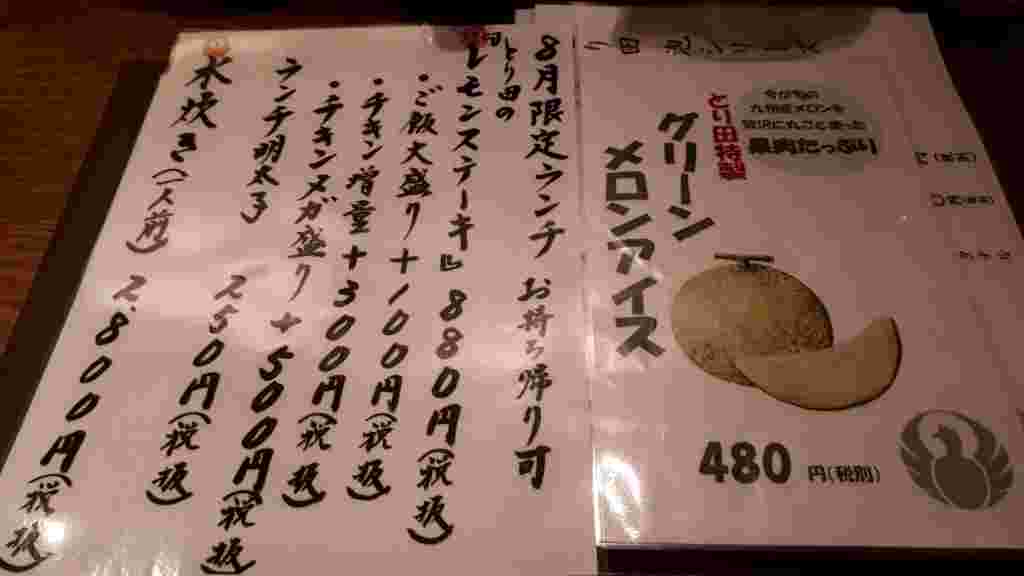 8月限定ランチ お持ち帰り可
とり田の
『レモンステーキ』 880円(税抜)
・ご飯大盛り+100円(税抜)
・チキン増量+300円(税抜)
・チキンメガ盛り+500円(税抜)
ランチ明太子 250円(税抜)
水炊き(一人前) 2,800円(税抜)
果肉たっぷり
とり田特製
グリーン
メロンアイス
480円(税別)